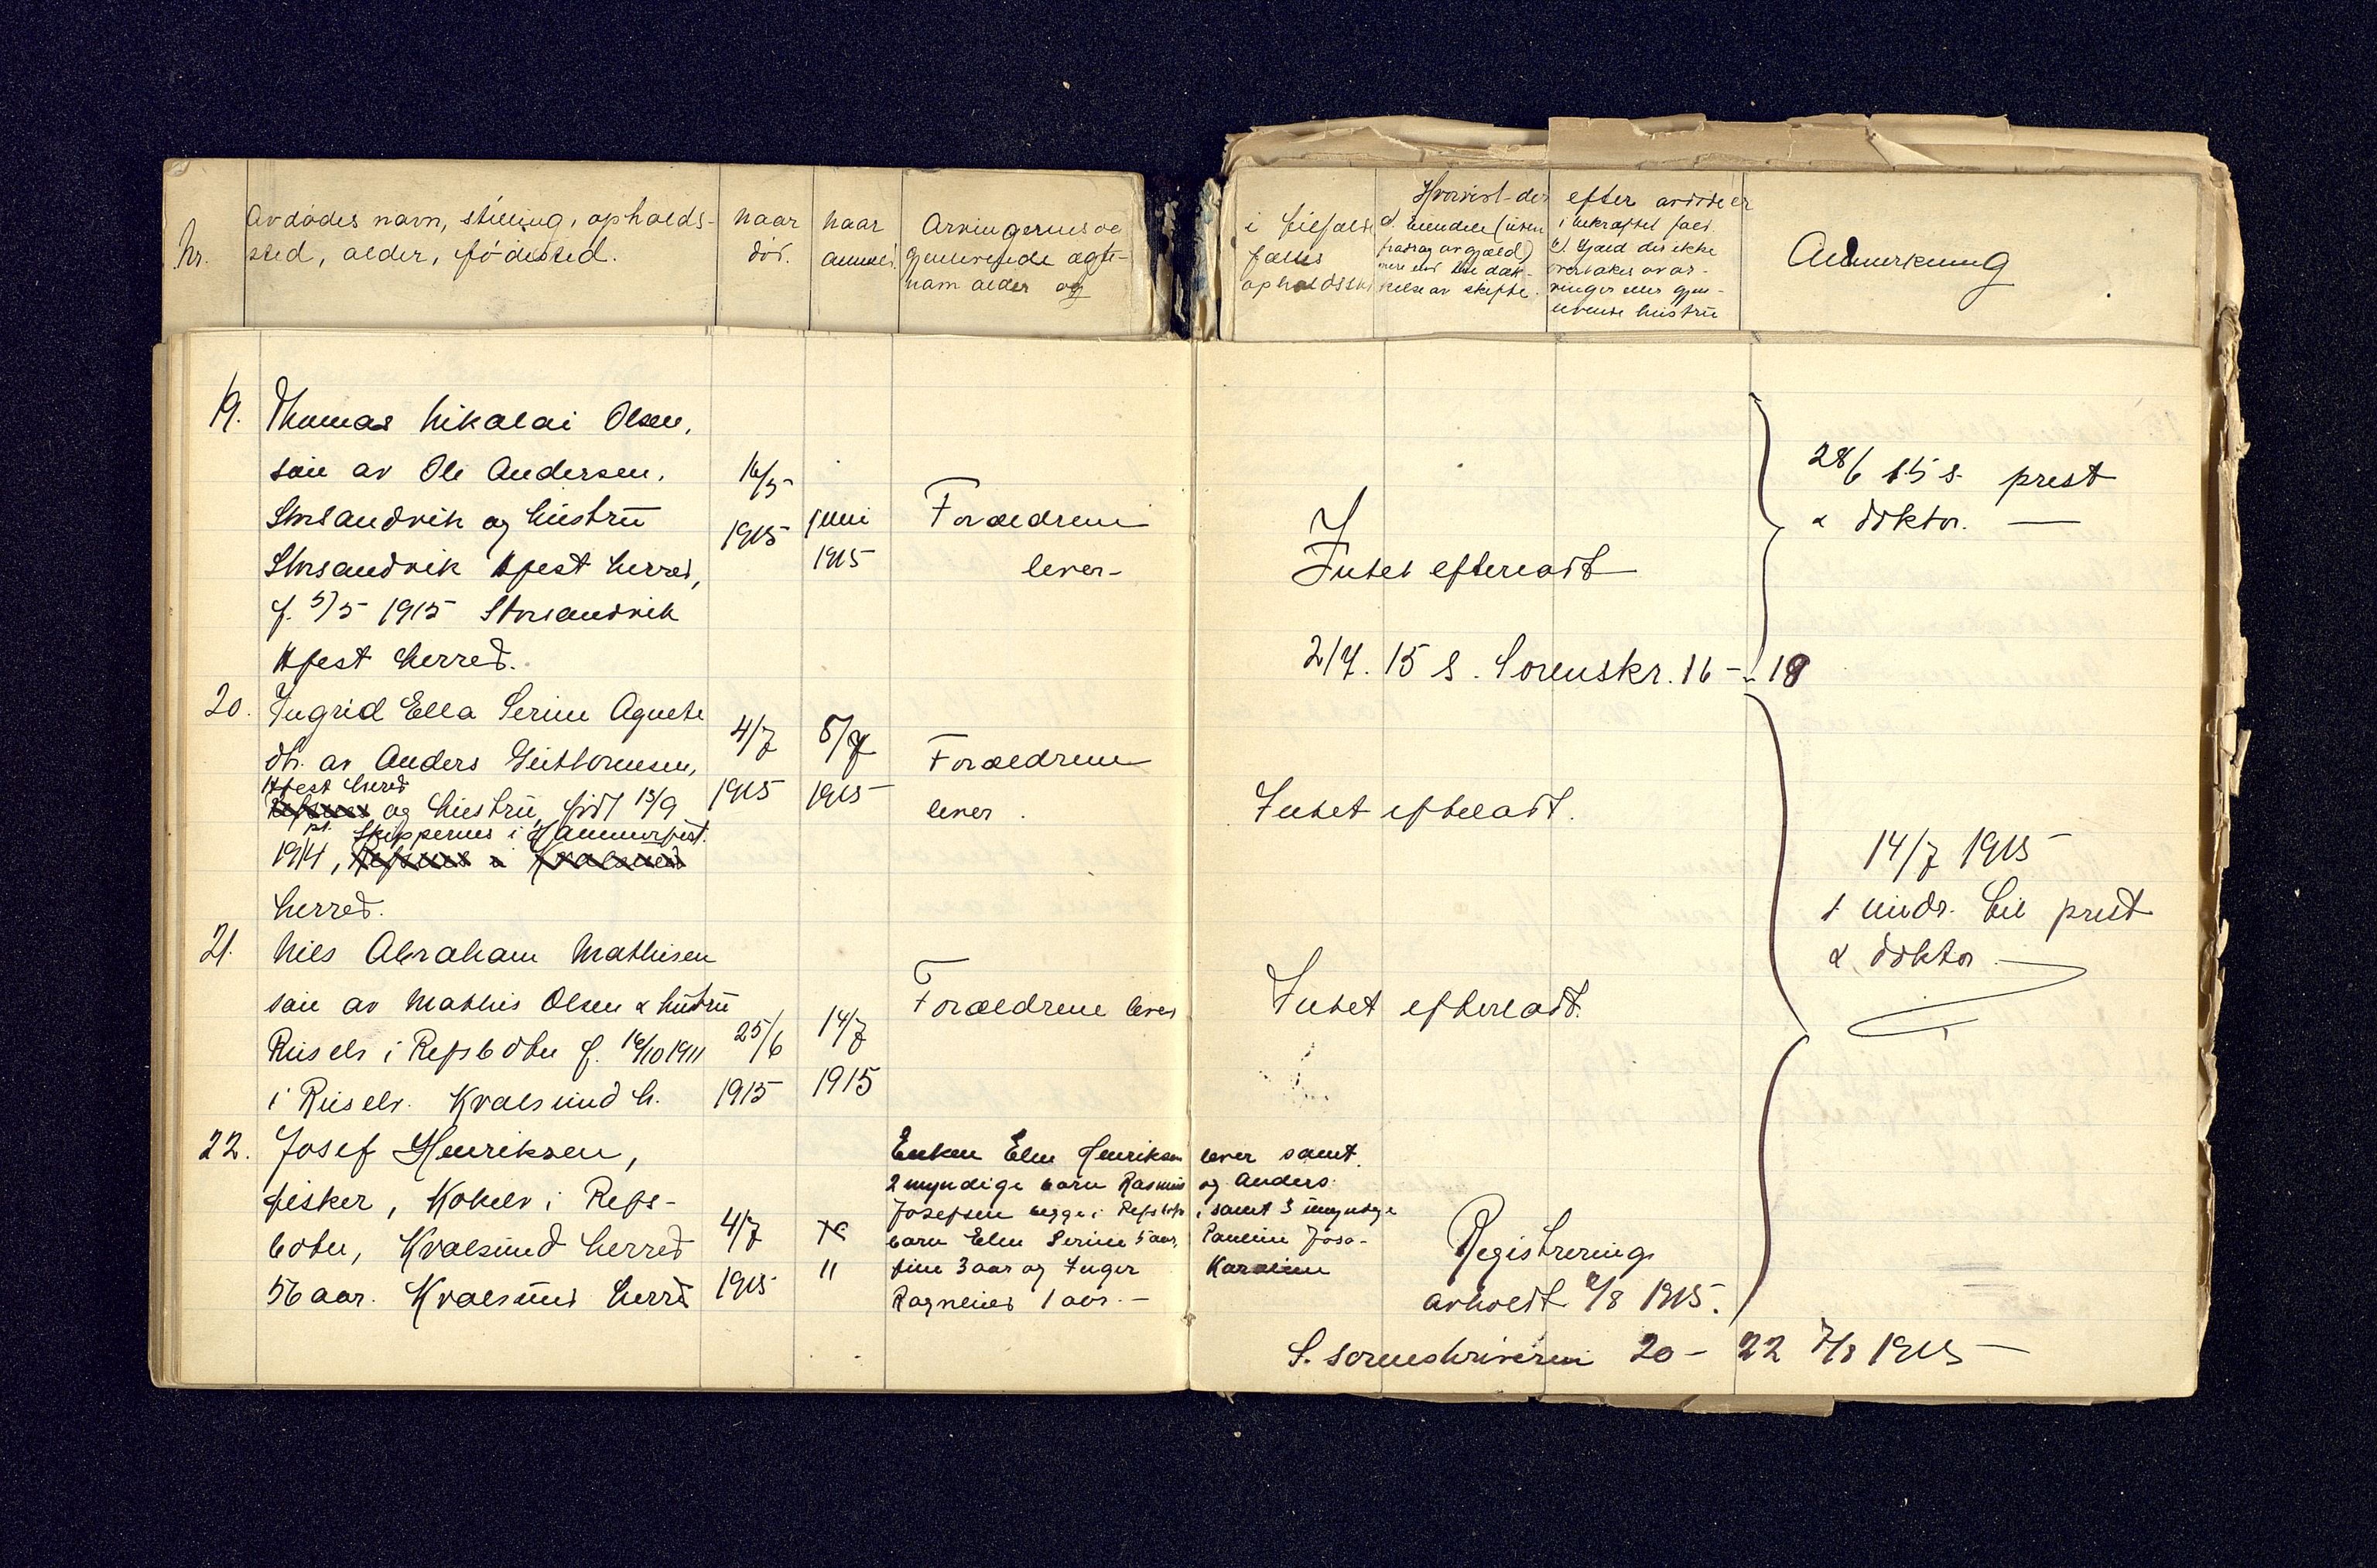 Nr.
Avdødes navn, stilling, opholds-
sted, alder, fødested.
naar
død.
naar
anmeldt.
Arvingernes og
gjenlevende ægte-
navn alder og
i tilfælde
fælles
opholdssted
Hvorvidt der efter avdøde er
d. Eiendele (uten
fradrag av gjæld)
mere end til dæk-
kelse av skifte.
i bekræftet fald
e) Gjæld der ikke
overtakes av ar-
vinger eller gjen-
levende hustru
Anmerkning
19. Thomas Nikolai Olsen,
søn av Ole Andersen,
Storsandvik og hustru
Storsandvik Hfest herred,
f. 5/5 1915 Storsandvik
Hfest herred.
16/5
1915
juni
1915
Forældrene
lever-
Intet efterladt
28/6 15 s. prest
& doktor. —
2/7. 15 S. Sorenskr. 16 - 18
20. Ingrid Ella Serine Agnete
dtr. av Anders Guttormsen,
Hfest herred
og hustru, født 15/9
pt. Skippernes i Hammerfest.
1914,
herred.
4/7
1915
5/7
1915
Forældrene
lever.
Intet efterladt.
14/7 1915
s. undr. til prest
& doktor —
21. Nils Abraham Mathisen
søn av Mathis Olsen & hustru
Ruselv i Repsbotn f. 16/10 1911
i Ruselv. Kvalsund h.
25/6
1915
14/7
1915
Forældrene lever
Intet efterladt.
22. Josef Henriksen,
fisker, Kokelv i Reps-
botn, Kvalsund herred
56 aar. Kvalsund herred
4/7
1915
"
Enken Elen Henriksen lever samt
2 myndige barn Rasmus og Anders
Josefsen begge i Repsbotn, samt 3 umyndige
barn Elen Serine 5 aar, Pauline Jose-
fine 3 aar og Inger Karoline
Ragnhild 1 aar. —
Registrering
avholdt 2/8 1915.
S. sorenskriveren 20 - 22 7/8 1915 —